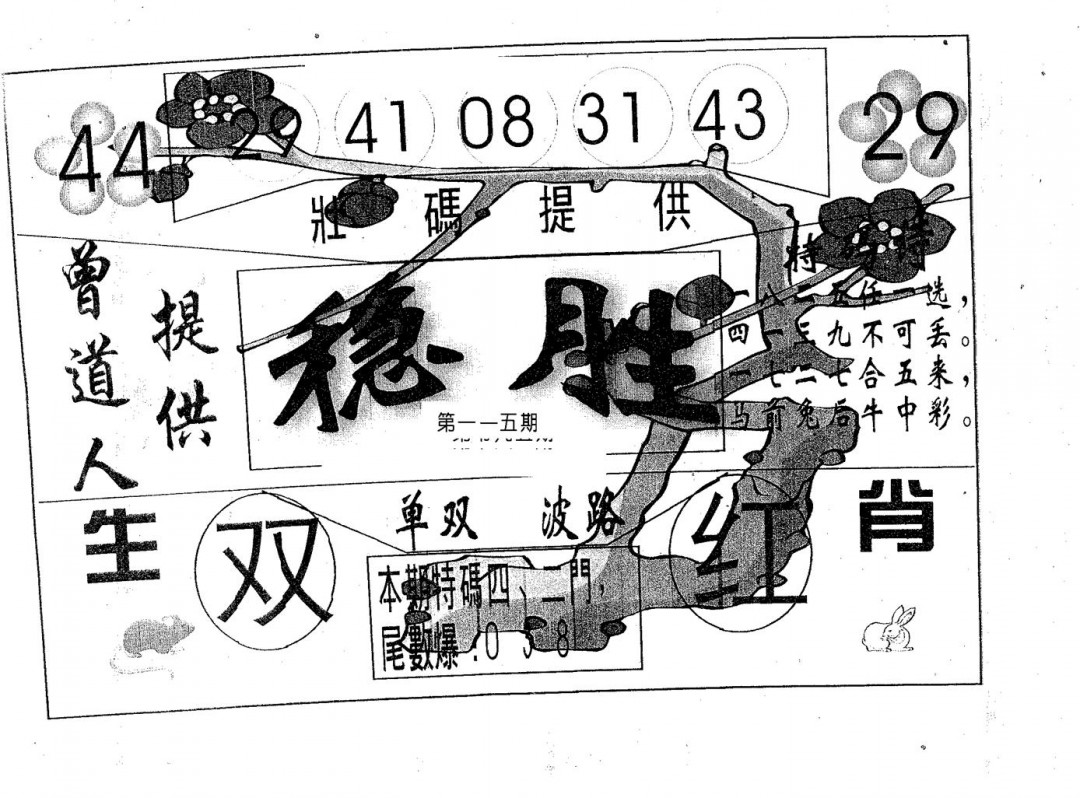 44 29 41 08 31 43 29
壯碼提供
曾道人
提供
特碼诗
一八二五任一选，
四一三九不可丢。
一七二七合五来，
马前兔后牛中彩。
稳胜
第一一五期
单双 波路
生 双 红 肖
本期特碼四、二門，
尾數爆:0 3 8